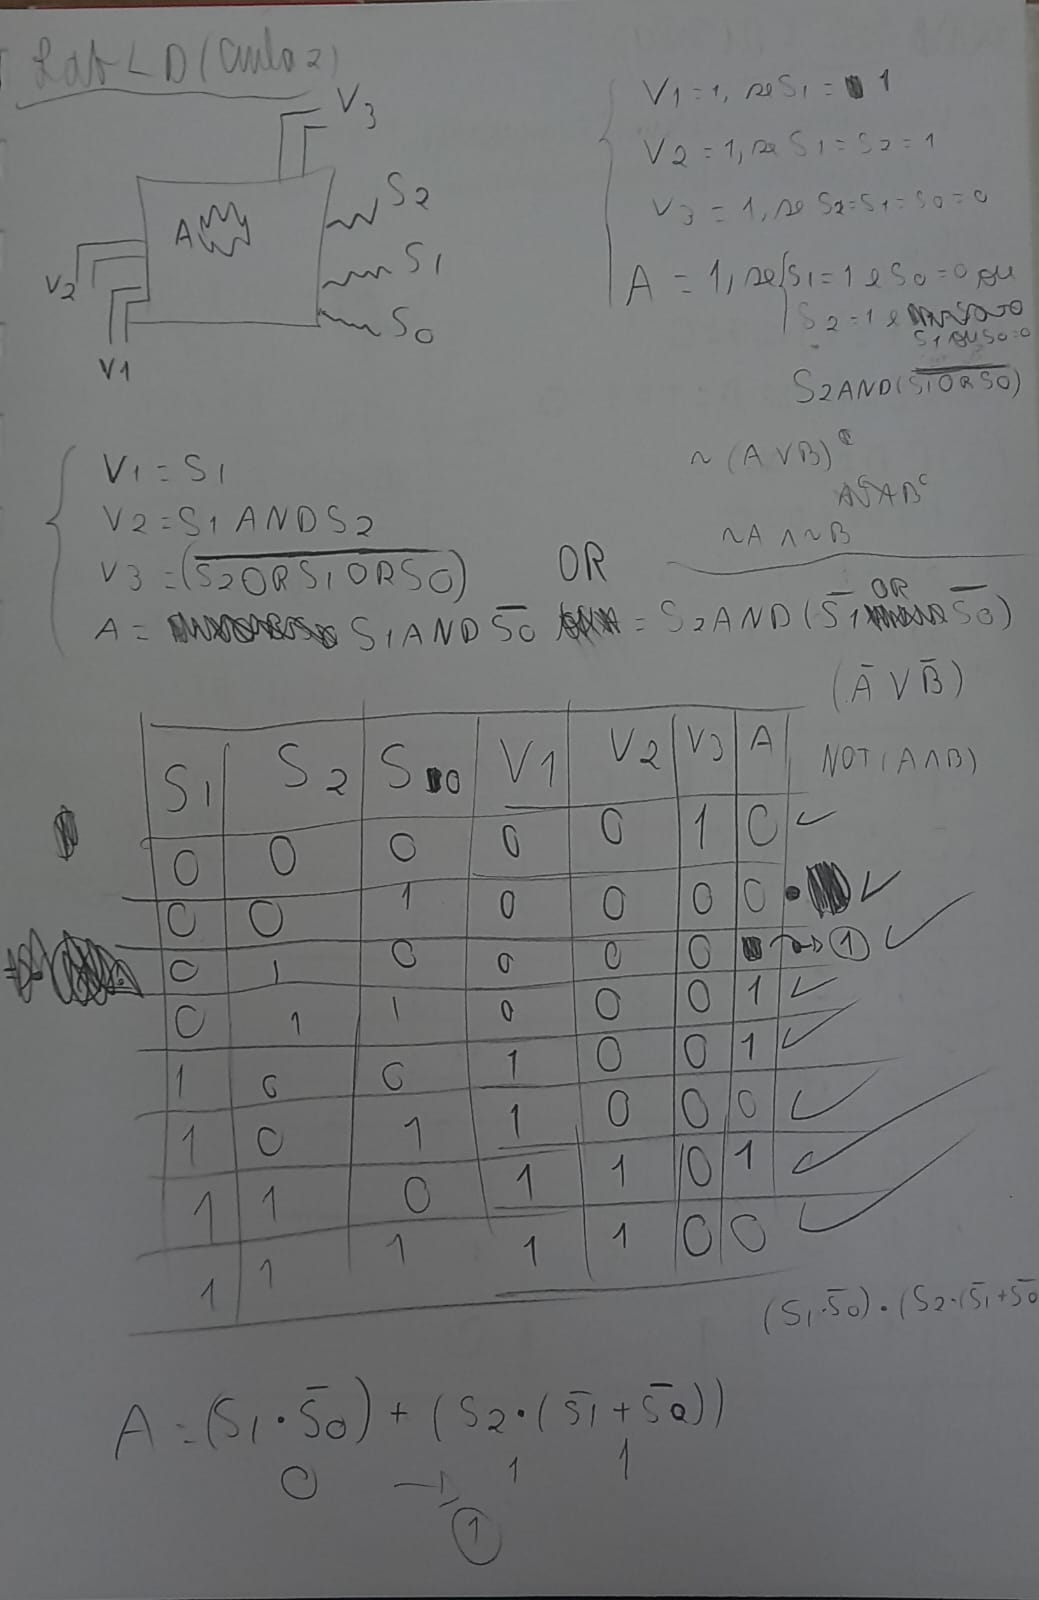 Lab LD (aula 2)
V3
S2
A
S1
V2
S0
V1
V1 = 1, se S1 = 1
V2 = 1, se S1 = S2 = 1
V3 = 1, se S2=S1=S0=0
A = 1, se S1 = 1 e S0 = 0 ou
S2 = 1 e
S1 ou S0=0
S2 AND (S̅1̅ ̅O̅R̅ ̅S̅0̅)
~ (A V B)ᶜ
Aᶜ Λ Bᶜ
~A Λ ~B
V1 = S1
V2 = S1 AND S2
V3 = (S̅2̅ ̅O̅R̅ ̅S̅1̅ ̅O̅R̅ ̅S̅0̅) OR
A = S1 AND S̅0 = S2 AND (S̅1 OR S̅0)
(A̅ V B̅)
NOT (A Λ B)
S1 S2 S0 V1 V2 V3 A
0 0 0 0 0 1 0 ✓
0 0 1 0 0 0 0 ✓
0 1 0 0 0 0 → 1 ✓
0 1 1 0 0 0 1 ✓
1 0 0 1 0 0 1 ✓
1 0 1 1 0 0 0 ✓
1 1 0 1 1 0 1 ✓
1 1 1 1 1 0 0 ✓
(S1·S̅0)·(S2·(S̅1+S̅0
A = (S1·S̅0) + (S2·(S̅1+S̅0))
0 → 1 1
1